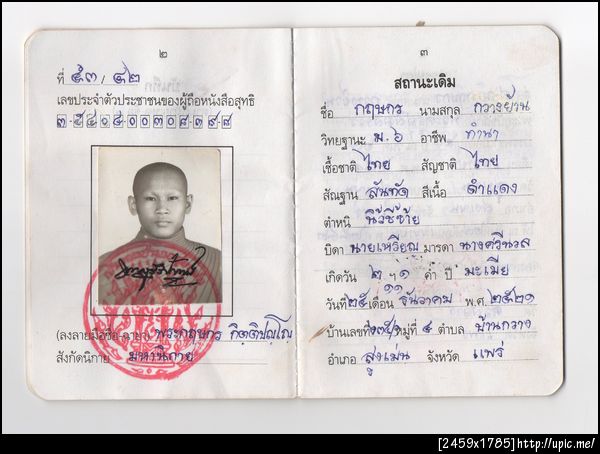 ๒
ที่ ๕๓ / ๔๒
เลขประจำตัวประชาชนของผู้ถือหนังสือสุทธิ
(ลงลายมือชื่อ-ฉายา) พระกฤษกร กิตติปญฺโญ
สังกัดนิกาย มหานิกาย
๓
สถานะเดิม
ชื่อ กฤษกร นามสกุล กวางย้าน
วิทยฐานะ ม.๖ อาชีพ ทำนา
เชื้อชาติ ไทย สัญชาติ ไทย
สัณฐาน สันทัด สีเนื้อ ดำแดง
ตำหนิ นิ้วชี้ซ้าย
บิดา นายเหรียญ มารดา นางศรีนวล
เกิดวัน ๒ ฯ ๑๑ ค่ำ ปี มะเมีย
วันที่ ๒๕ เดือน ธันวาคม พ.ศ. ๒๕๒๑
บ้านเลขที่ หมู่ที่ ๔ ตำบล บ้านกวาง
อำเภอ สูงเม่น จังหวัด แพร่
[2459x1785]http://upic.me/